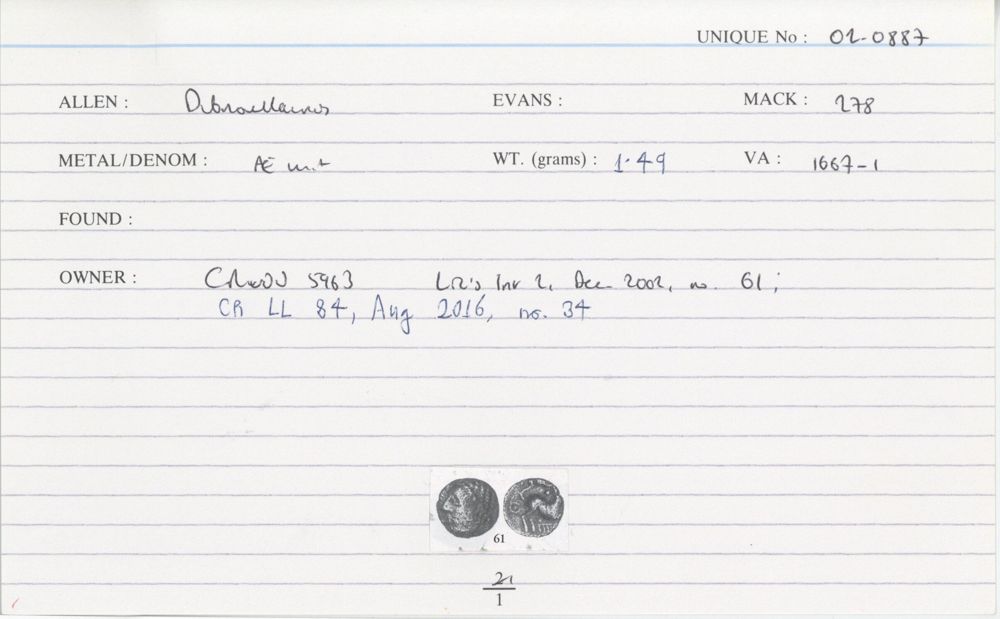 UNIQUE No : 02-0887
ALLEN : Dubnovellaunos EVANS : MACK : 278
METAL/DENOM : Æ unit WT. (grams) : 1.49 VA : 1667-1
FOUND :
OWNER : 5963 Inv 2, Dec 2002, no. 61;
CR LL 84, Aug 2016, no. 34
61
21
1